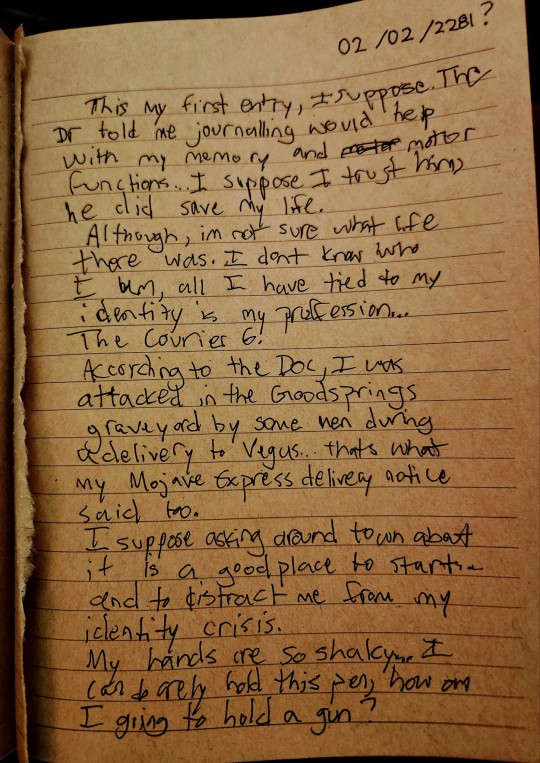 02/02/2281?
This my first entry, I suppose. The
Dr told me journalling would help
with my memory and motor
functions... I suppose I trust him,
he did save my life.
Although, im not sure what life
there was. I dont know who
I am, all I have tied to my
identity is my proffession...
The Courier 6.
According to the Doc, I was
attacked in the Goodsprings
graveyard by some men during
a delivery to Vegus... thats what
my Mojave Express delivery notice
said too.
I suppose asking around town about
it is a good place to start
and to distract me from my
identity crisis.
My hands are so shaky... I
can barely hold this pen, how am
I going to hold a gun?